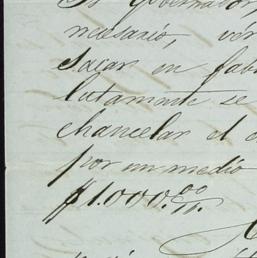 Gobernador,
necesario, ver
sacar en fab
lutamente se
chancelar el
por un medio
$1.000.00